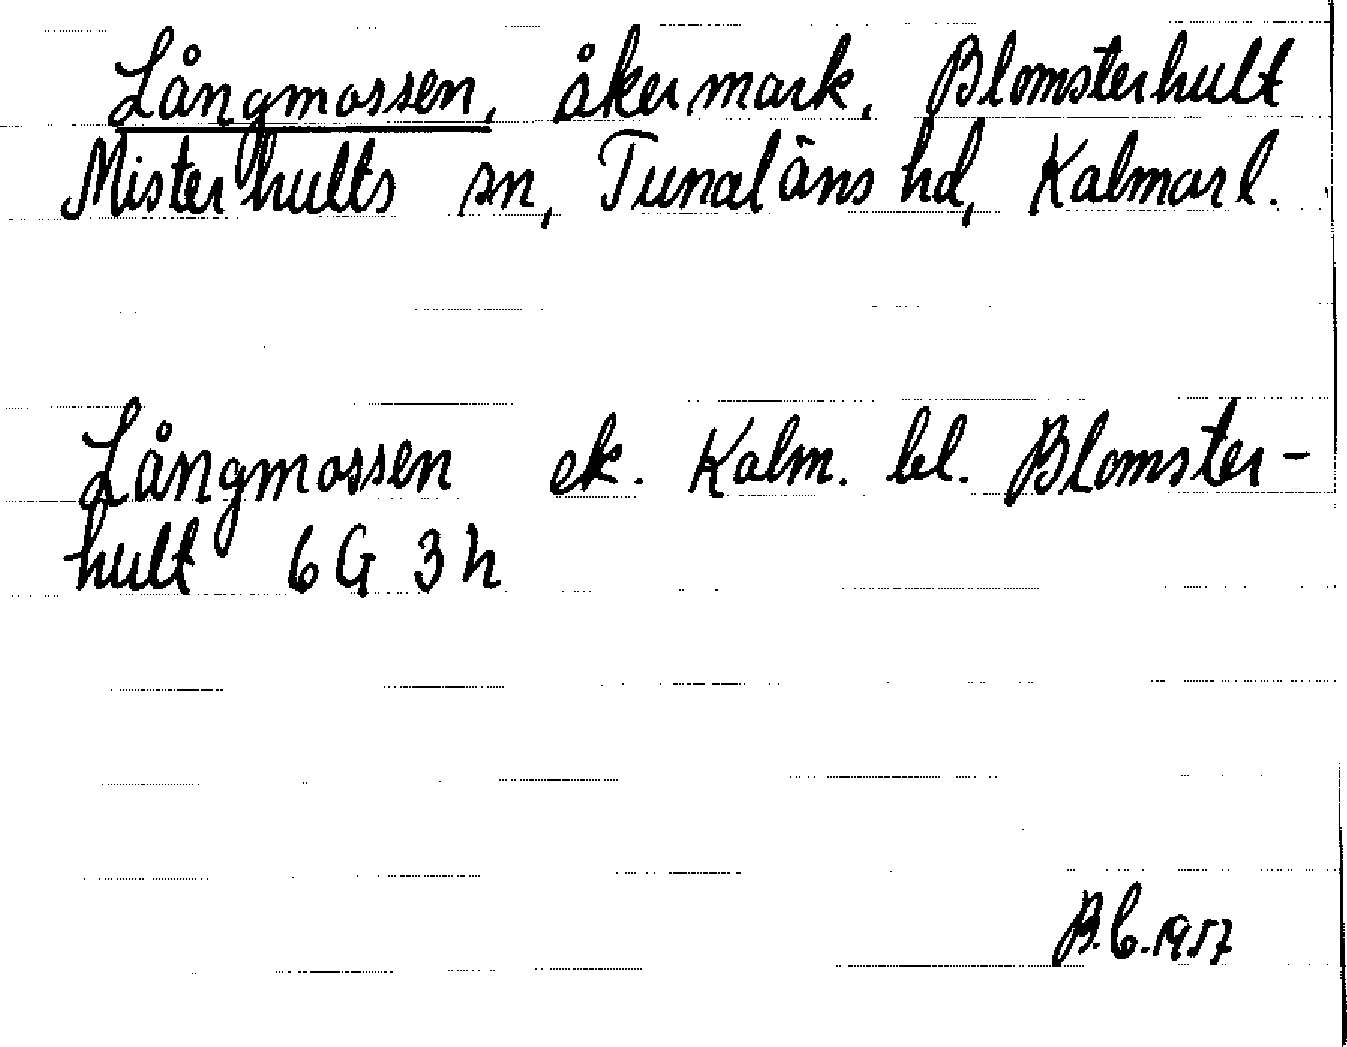 Långmossen, åkermark, Blomsterhult
Misterhults sn, Tunaläns hd, Kalmar l.
Långmossen ek. Kalm. bl. Blomster-
hult 6G 3h
B.C. 1957